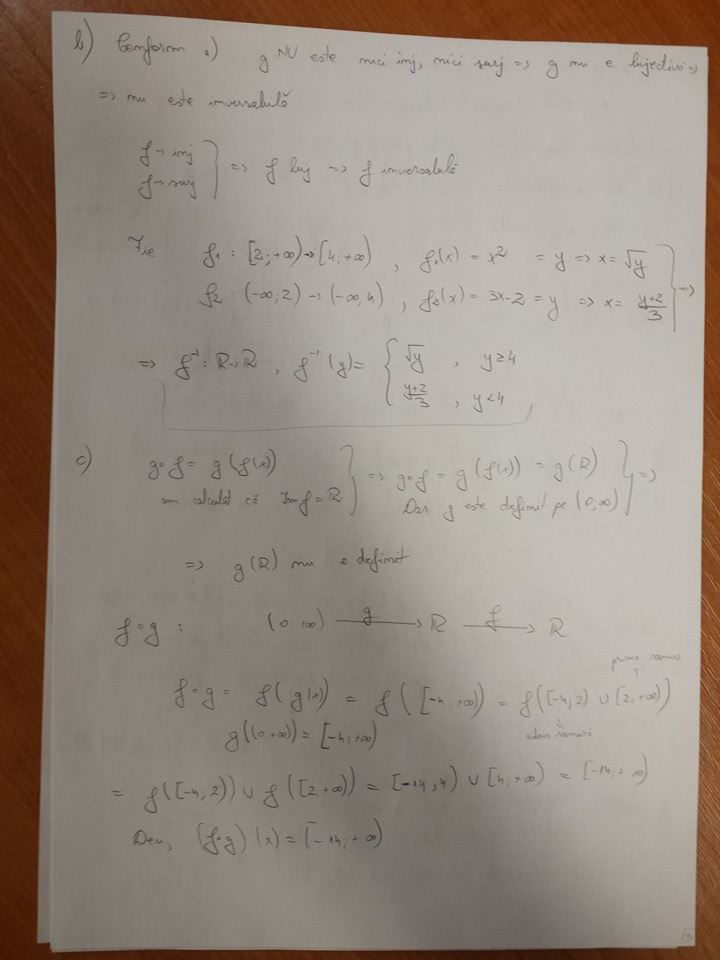 b) Conform a) g NU este nici inj, nici surj => g nu e bijectivă =>
=> nu este inversabilă
f → inj
f → surj } => f bij => f inversabilă
Fie f₁ : [2; +∞) → [4; +∞) , f₁(x) = x² = y => x = √y
f₂ : (-∞; 2) → (-∞, 4) , f₂(x) = 3x-2 = y => x = (y+2)/3 } =>
=> f⁻¹ : R→R , f⁻¹(y) = { √y , y ≥ 4
(y+2)/3 , y < 4
c) g∘f = g(f(x))
am calculat că Im f = R } => g∘f = g(f(x)) = g(R)
Dar g este definit pe (0, ∞) } =>
=> g(R) nu e definit
f∘g : (0, +∞) —g→ R —f→ R
prima ramură
f∘g = f(g(x)) = f([-4; +∞)) = f([-4; 2) ∪ [2; +∞))
g((0, +∞)) = [-4; +∞)
a doua ramură
= f([-4; 2)) ∪ f([2, +∞)) = [-14, 4) ∪ [4; +∞) = [-14; ∞)
Deci, (f∘g)(x) = [-14; +∞)